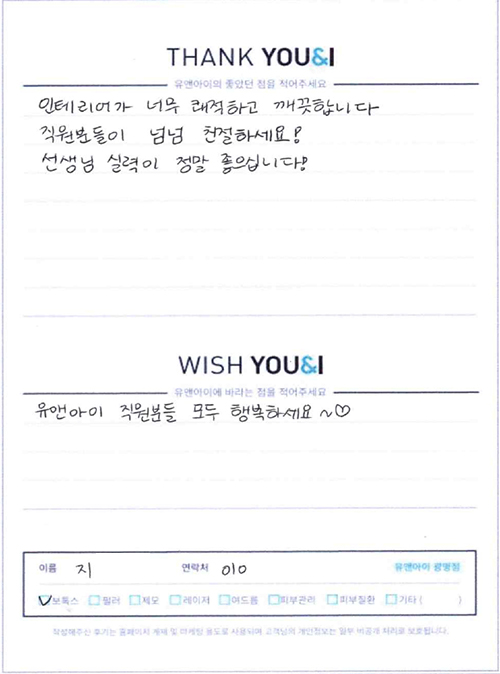 THANK YOU&I
유앤아이의 좋았던 점을 적어주세요
인테리어가 너무 쾌적하고 깨끗합니다
직원분들이 넘넘 친절하세요!
선생님 실력이 정말 좋으십니다!
WISH YOU&I
유앤아이에 바라는 점을 적어주세요
유앤아이 직원분들 모두 행복하세요~♡
이름 지 연락처 010 유앤아이 광명점
보톡스 필러 제모 레이저 여드름 피부관리 피부질환 기타 ( )
작성해주신 후기는 홈페이지 게재 및 마케팅 용도로 사용되며 고객님의 개인정보는 일부 비공개 처리로 보호됩니다.